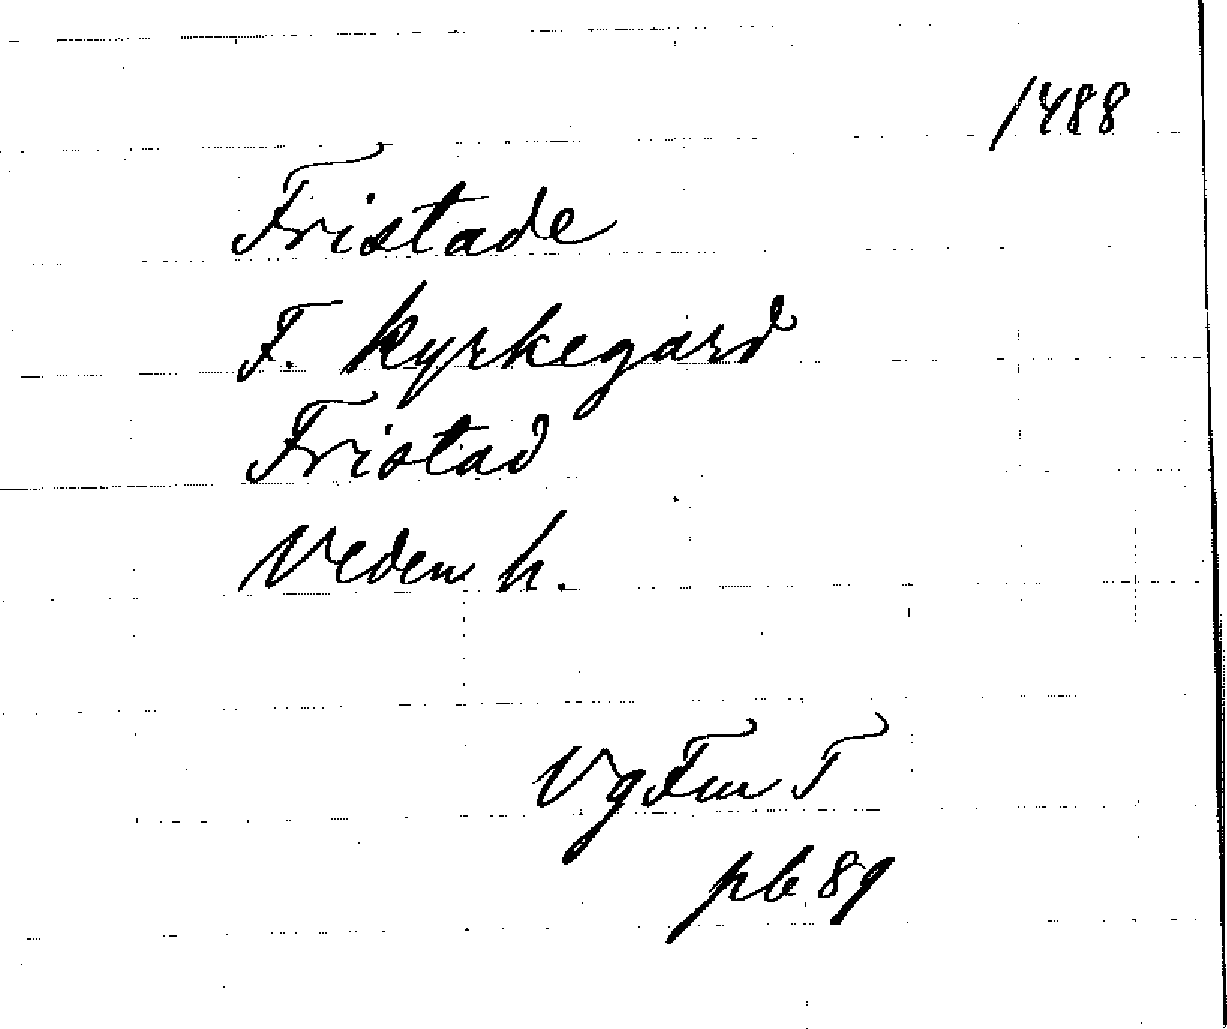 1488
Fristade
F. kyrkegard
Fristad
Vedem h.
VgFmT
pb 89